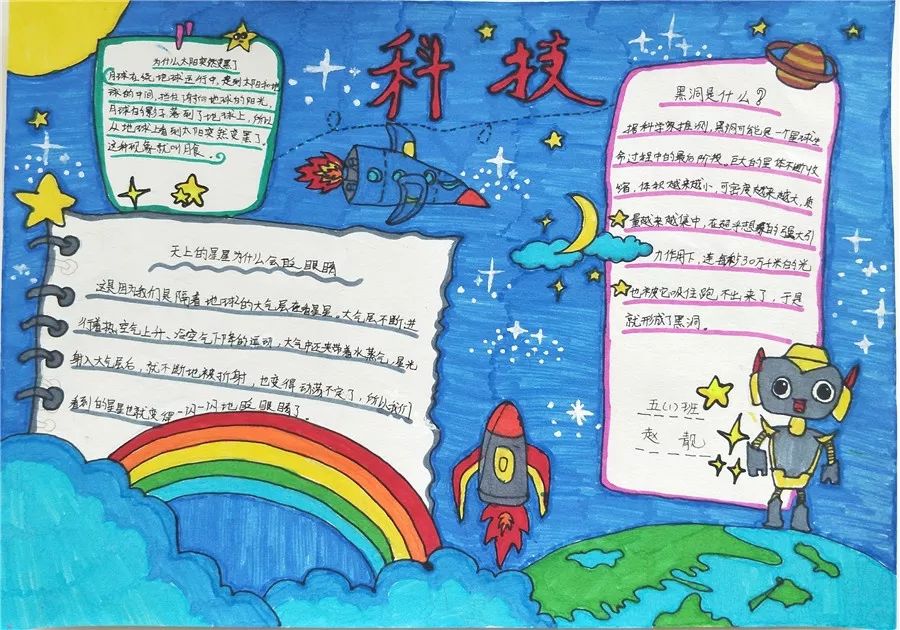 科技
为什么太阳突然变黑了
月球在绕地球运行中,走到太阳和地
球的中间,挡住了射向地球的阳光,
月球的影子落到了地球上,所以
从地球上看到太阳突然变黑了,
这种现象就叫月食。
天上的星星为什么会眨眼睛
这是因为我们是隔着地球的大气层在看星星。大气层不断进
行着热空气上升、冷空气下降的运动,大气中还夹带着水蒸气,星光
射入大气层后,就不断地被折射,也变得动荡不定了,所以我们
看到的星星也就变得一闪一闪地眨眼睛了。
黑洞是什么?
据科学家推测,黑洞可能是一个星球生
命过程中的最后阶段。巨大的星体不断收
缩,体积越来越小,可密度越来越大,质
量越来越集中,在超乎想象的强大引
力作用下,连每秒30万千米的光
也被它吸住跑不出来了,于是
就形成了黑洞。
五(1)班
赵靓